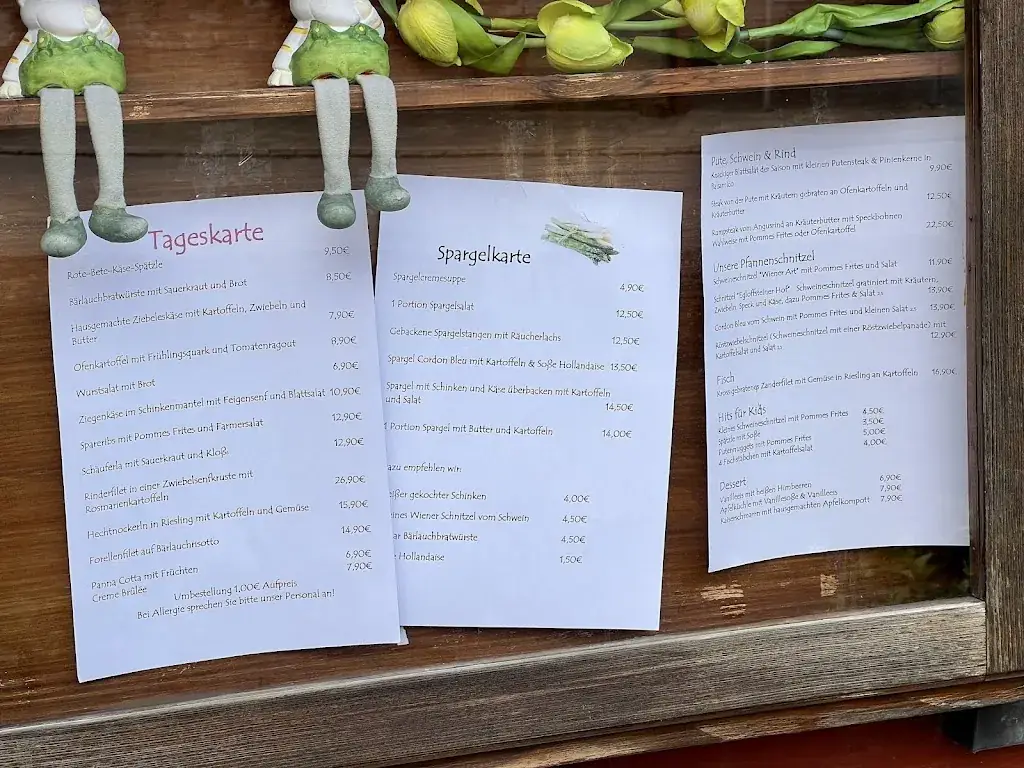 Tageskarte
Rote-Bete-Käse-Spätzle 9,50€
Bärlauchbratwürste mit Sauerkraut und Brot 8,50€
Hausgemachte Ziebeleskäse mit Kartoffeln, Zwiebeln und
Butter 7,90€
Ofenkartoffel mit Frühlingsquark und Tomatenragout 8,90€
Wurstsalat mit Brot 6,90€
Ziegenkäse im Schinkenmantel mit Feigensenf und Blattsalat 10,90€
Spareribs mit Pommes Frites und Farmersalat 12,90€
Schäuferla mit Sauerkraut und Klöße 12,90€
Rinderfilet in einer Zwiebelsenfkruste mit
Rosmarienkartoffeln 26,90€
Hechtnockerln in Riesling mit Kartoffeln und Gemüse 15,90€
Forellenfilet auf Bärlauchrisotto 14,90€
Panna Cotta mit Früchten 6,90€
Creme Brûlée 7,90€
Umbestellung 1,00€ Aufpreis
Bei Allergie sprechen Sie bitte unser Personal an!
Spargelkarte
Spargelcremesuppe 4,90€
1 Portion Spargelsalat 12,50€
Gebackene Spargelstangen mit Räucherlachs 12,50€
Spargel Cordon Bleu mit Kartoffeln & Soße Hollandaise 13,50€
Spargel mit Schinken und Käse überbacken mit Kartoffeln
und Salat 14,50€
1 Portion Spargel mit Butter und Kartoffeln 14,00€
azu empfehlen wir
gekochter Schinken 4,00€
ines Wiener Schnitzel vom Schwein 4,50€
ar Bärlauchbratwürste 4,50€
Hollandaise 1,50€
Pute, Schwein & Rind
Knackiger Blattsalat der Saison mit kleinen Putensteak & Pinienkerne in 9,90€
Steak von der Pute mit Kräutern gebraten an Ofenkartoffeln und
Kräuterbutter 12,50€
Rumpsteak vom Angusrind an Kräuterbutter mit Speckbohnen
Wahlweise mit Pommes Frites oder Ofenkartoffel 22,50€
Unsere Pfannenschnitzel
Schweineschnitzel "Wiener Art" mit Pommes Frites und Salat 11,90€
Schnitzel "Egloffsteiner Hof" Schweineschnitzel gratiniert mit Kräutern,
Zwiebeln, Speck und Käse, dazu Pommes Frites & Salat 13,90€
Cordon Bleu vom Schwein mit Pommes Frites und kleinen Salat 13,90€
Röstzwiebelschnitzel (Schweineschnitzel mit einer Röstzwiebelpanade) mit
Kartoffelsalat und Salat 12,90€
Fisch
Kross gebratenes Zanderfilet mit Gemüse in Riesling an Kartoffeln 16,90€
Hits für Kids
kleines Schweineschnitzel mit Pommes Frites 4,50€
Spätzle mit Soße 3,50€
Putennuggets mit Pommes Frites 5,00€
4 Fischstäbchen mit Kartoffelsalat 4,00€
Dessert
Vanilleeis mit heißen Himbeeren 6,90€
Apfelküchle mit Vanillesoße & Vanilleeis 7,90€
Kaiserschmarrn mit hausgemachten Apfelkompott 7,90€